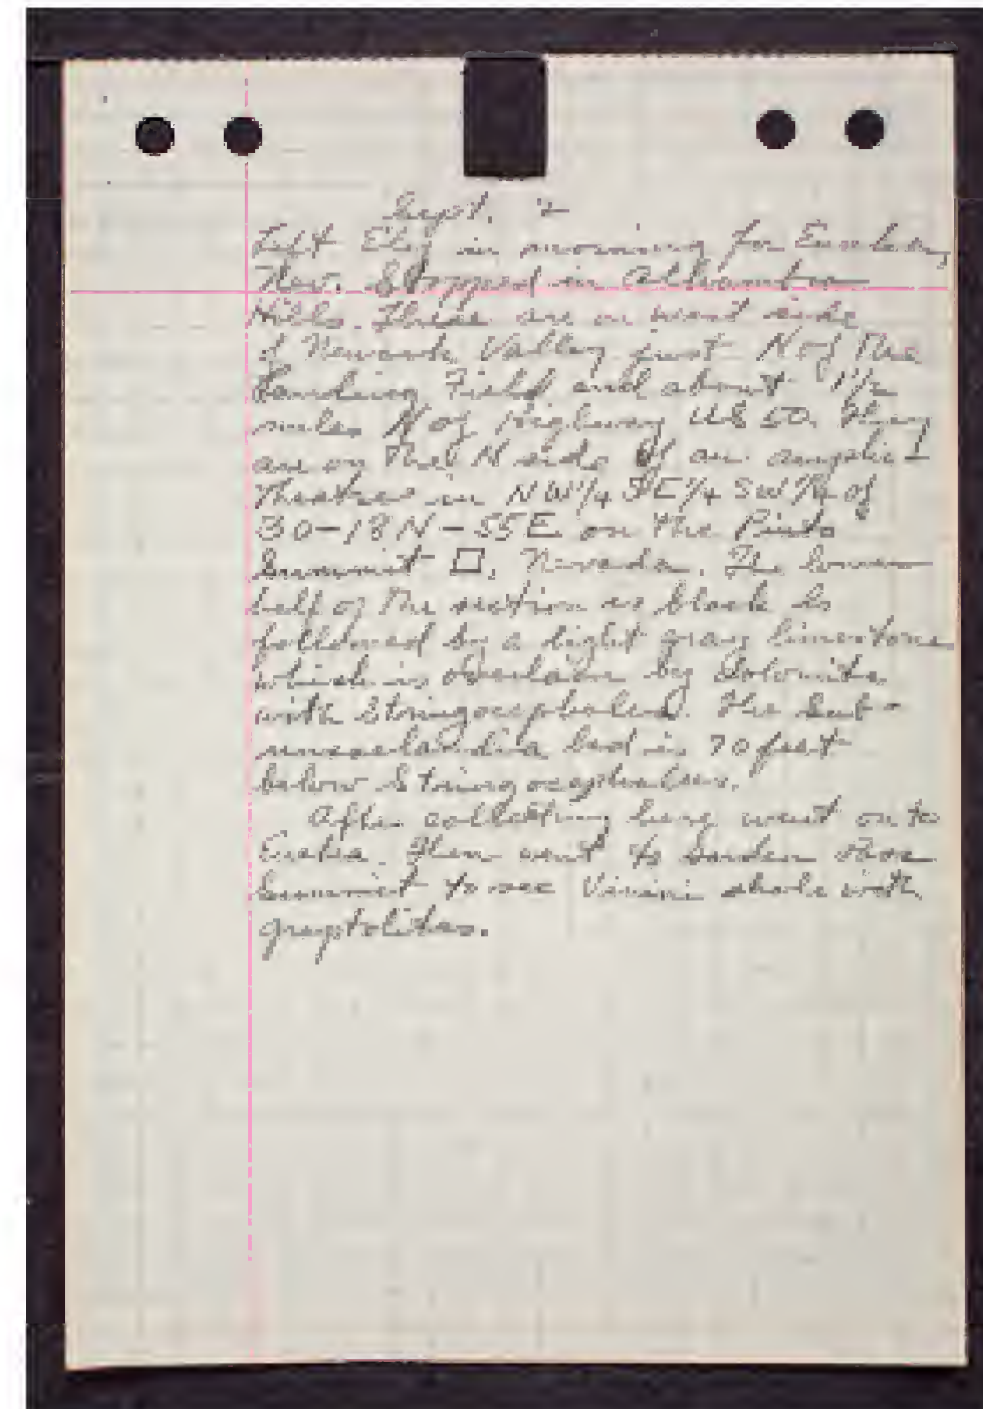 Sept. 2
Left Ely in morning for Eureka,
Nev. Stopped in Alhambra
Hills. These are on west side
of Newark Valley just N of the
Landing Field and about 1 1/2
miles N of Highway US 50. They
are on the N side of an amphi-
theatre in NW 1/4 SE 1/4 SW 1/4 of
30-18N-55E on the Pinto
Summit □, Nevada. The lower
half of the section is black ls
followed by a light gray limestone
which is overlain by dolomite
with Stringocephalus. The
bed is 70 feet
below Stringocephalus.
After collecting here went on to
Eureka. Then went to Garden Pass
Summit to see Vinini shale with
graptolites.